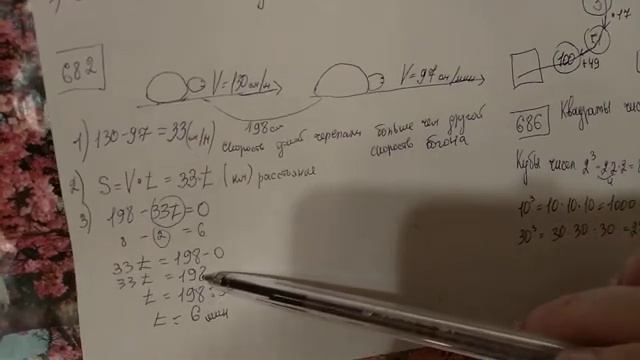 682
V = 130 см/м
V = 97 см/мин
198 см
1) 130 - 97 = 33 (см/м) скорость одной черепахи больше чем другой
скорость
2) S = V • t = 33 • t (км) расстояние
3) 198 - 33t = 0
8 - 2 = 6
33 t = 198 - 0
33 t = 198
t = 198 :
t = 6 мин
3
• 17
100
+49
686 Квадраты чис
Кубы чисел 2³ = 2·2·2 =
4
10³ = 10 · 10 · 10 = 1000
30³ = 30 · 30 · 30 = 2